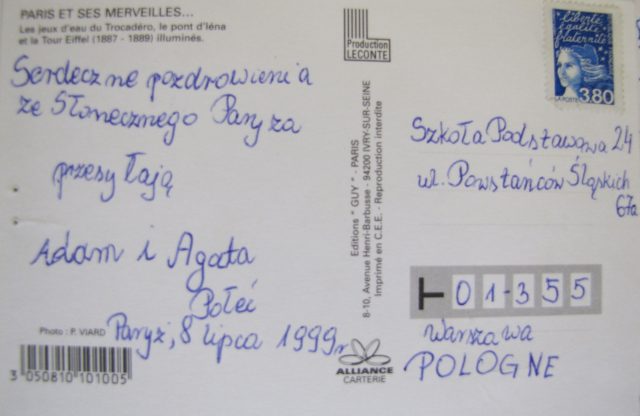 PARIS ET SES MERVEILLES...
Les jeux d'eau du Trocadéro, le pont d'Iéna
et la Tour Eiffel (1887 - 1889) illuminés.
Serdeczne pozdrowienia
ze Słonecznego Paryża
przesyłają
Adam i Agata
Połeć
Paryż, 8 lipca 1999r
Photo : P. VIARD
3 050810 101005
Production
LECONTE
Editions " GUY " - PARIS
8-10, Avenue Henri-Barbusse - 94200 IVRY-SUR-SEINE
Imprimé en C.E.E. - Reproduction interdite
ALLIANCE
CARTERIE
Liberté
égalité
fraternité
LA POSTE
3,80
Szkoła Podstawowa 24
ul. Powstańców Śląskich
67a
T 01-355
Warszawa
POLOGNE